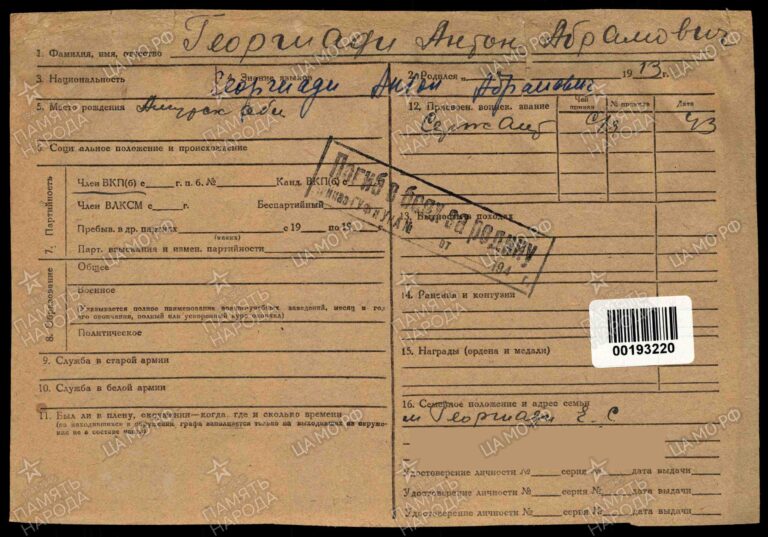 1. Фамилия, имя, отчество Георгиади Антон Абрамович
3. Национальность
4. Знание языков
Георгиади Антон Абрамович
2. Родился „ 1913 г.
5. Место рождения
12. Присвоен. воинск. звание
Чей приказ
№ приказа
Дата
Сержант
43
6. Социальное положение и происхождение
7. Партийность
Член ВКП(б) с г. п. б. № Канд. ВКП(б) с
Член ВЛКСМ с г. Беспартийный
Пребыв. в др. партиях с 19 по 19
(каких)
Парт. взыскания и измен. партийности
Погиб в боях за родину
от 194 г.
13. Был в походах
8. Образование
Общее
Военное
(Указывается полное наименование военно-учебных заведений, месяц и год
его окончания, полный или ускоренный курс окончил)
Политическое
14. Ранения и контузии
00193220
9. Служба в старой армии
15. Награды (ордена и медали)
10. Служба в белой армии
11. Был ли в плену, окружении—когда, где и сколько времени
(на находившихся в окружении графа заполняется только на выходивших из окруже-
ния не в составе части)
16. Семейное положение и адрес семьи
м Георгиади Е. С
Удостоверение личности № серия № дата выдачи
Удостоверение личности № серия № дата выдачи
Удостоверение личности № серия № дата выдачи
ПАМЯТЬ НАРОДА
ЦА МО.РФ